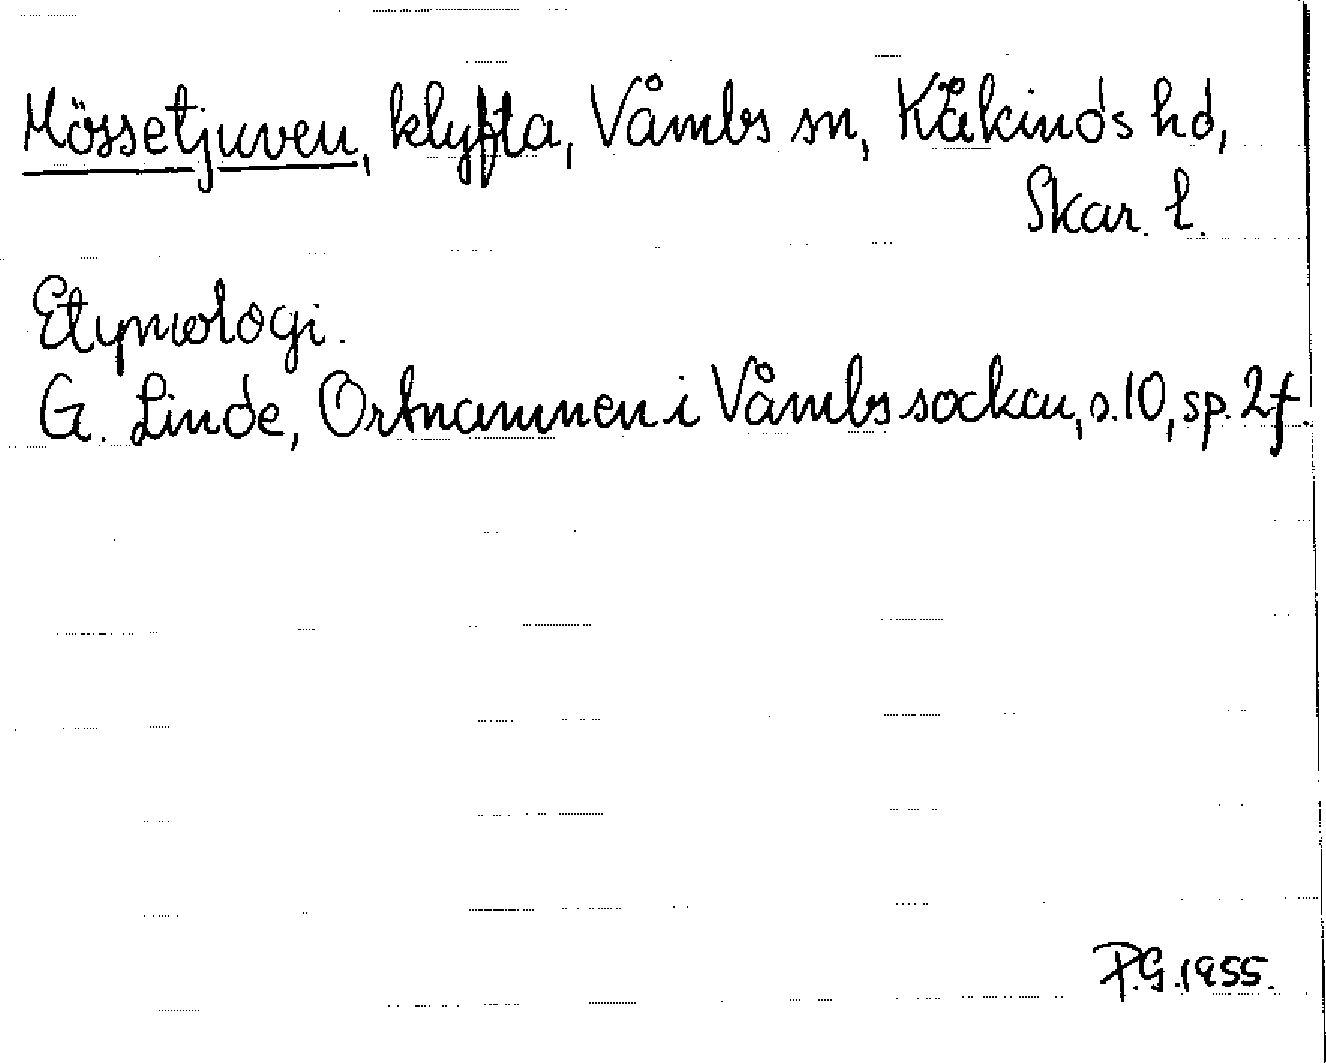 Mössetjuven, klyfta, Våmbs sn, Kåkinds hd,
Skar. l.
Etymologi.
G. Linde, Ortnamnen i Våmbs socken, s. 10, sp. 2 f.
P.G. 1955.